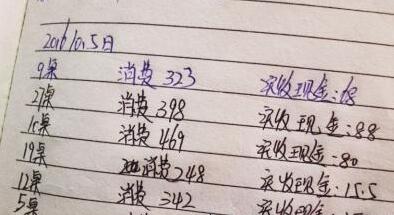 2016 10.5日
9桌 消费 323 实收现金:68
21桌 消费 398 实收现金:88
1桌 消费 469 实收现金:80
19桌 消费 248 实收现金:15.5
12桌 消费 342 实收现金
5桌